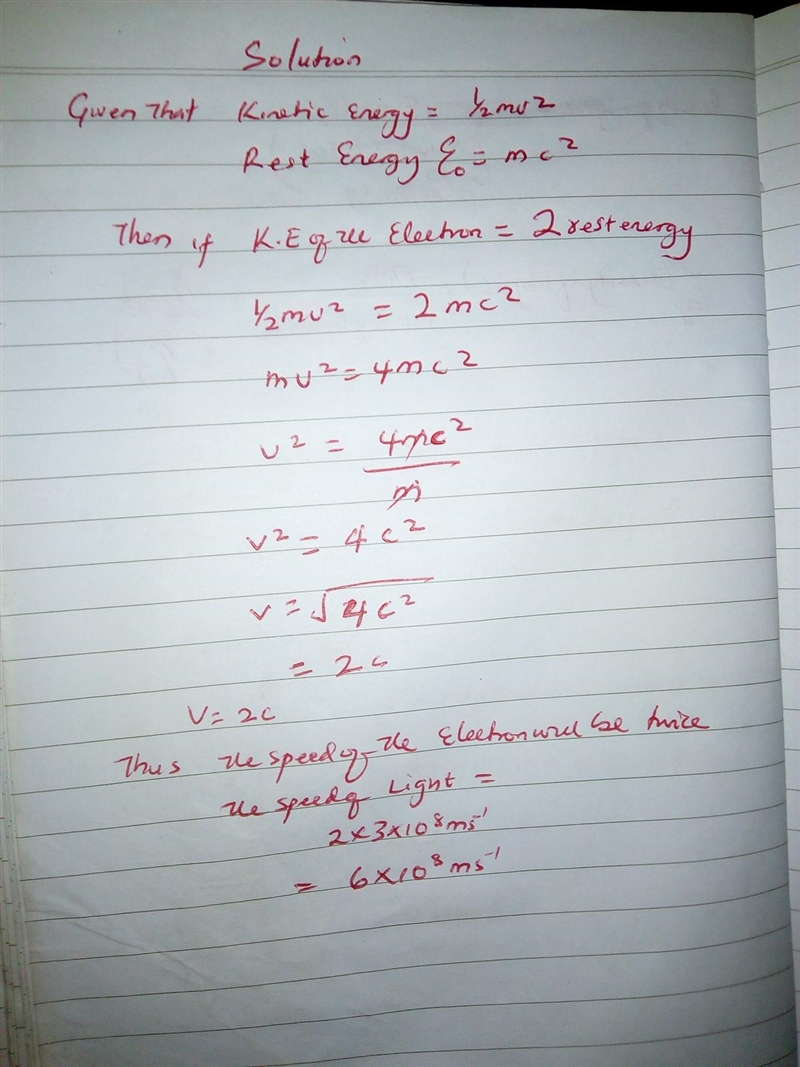 Solution
Given That Kinetic Energy = 1/2 mv²
Rest Energy E₀ = mc²
Then if K.E of the Electron = 2 rest energy
1/2 mv² = 2mc²
mv² = 4mc²
v² = 4mc²
m
v² = 4c²
v = √4c²
= 2c
V = 2c
Thus the speed of the Electron will be twice
the speed of Light =
2 × 3 × 10⁸ ms⁻¹
= 6 × 10⁸ ms⁻¹